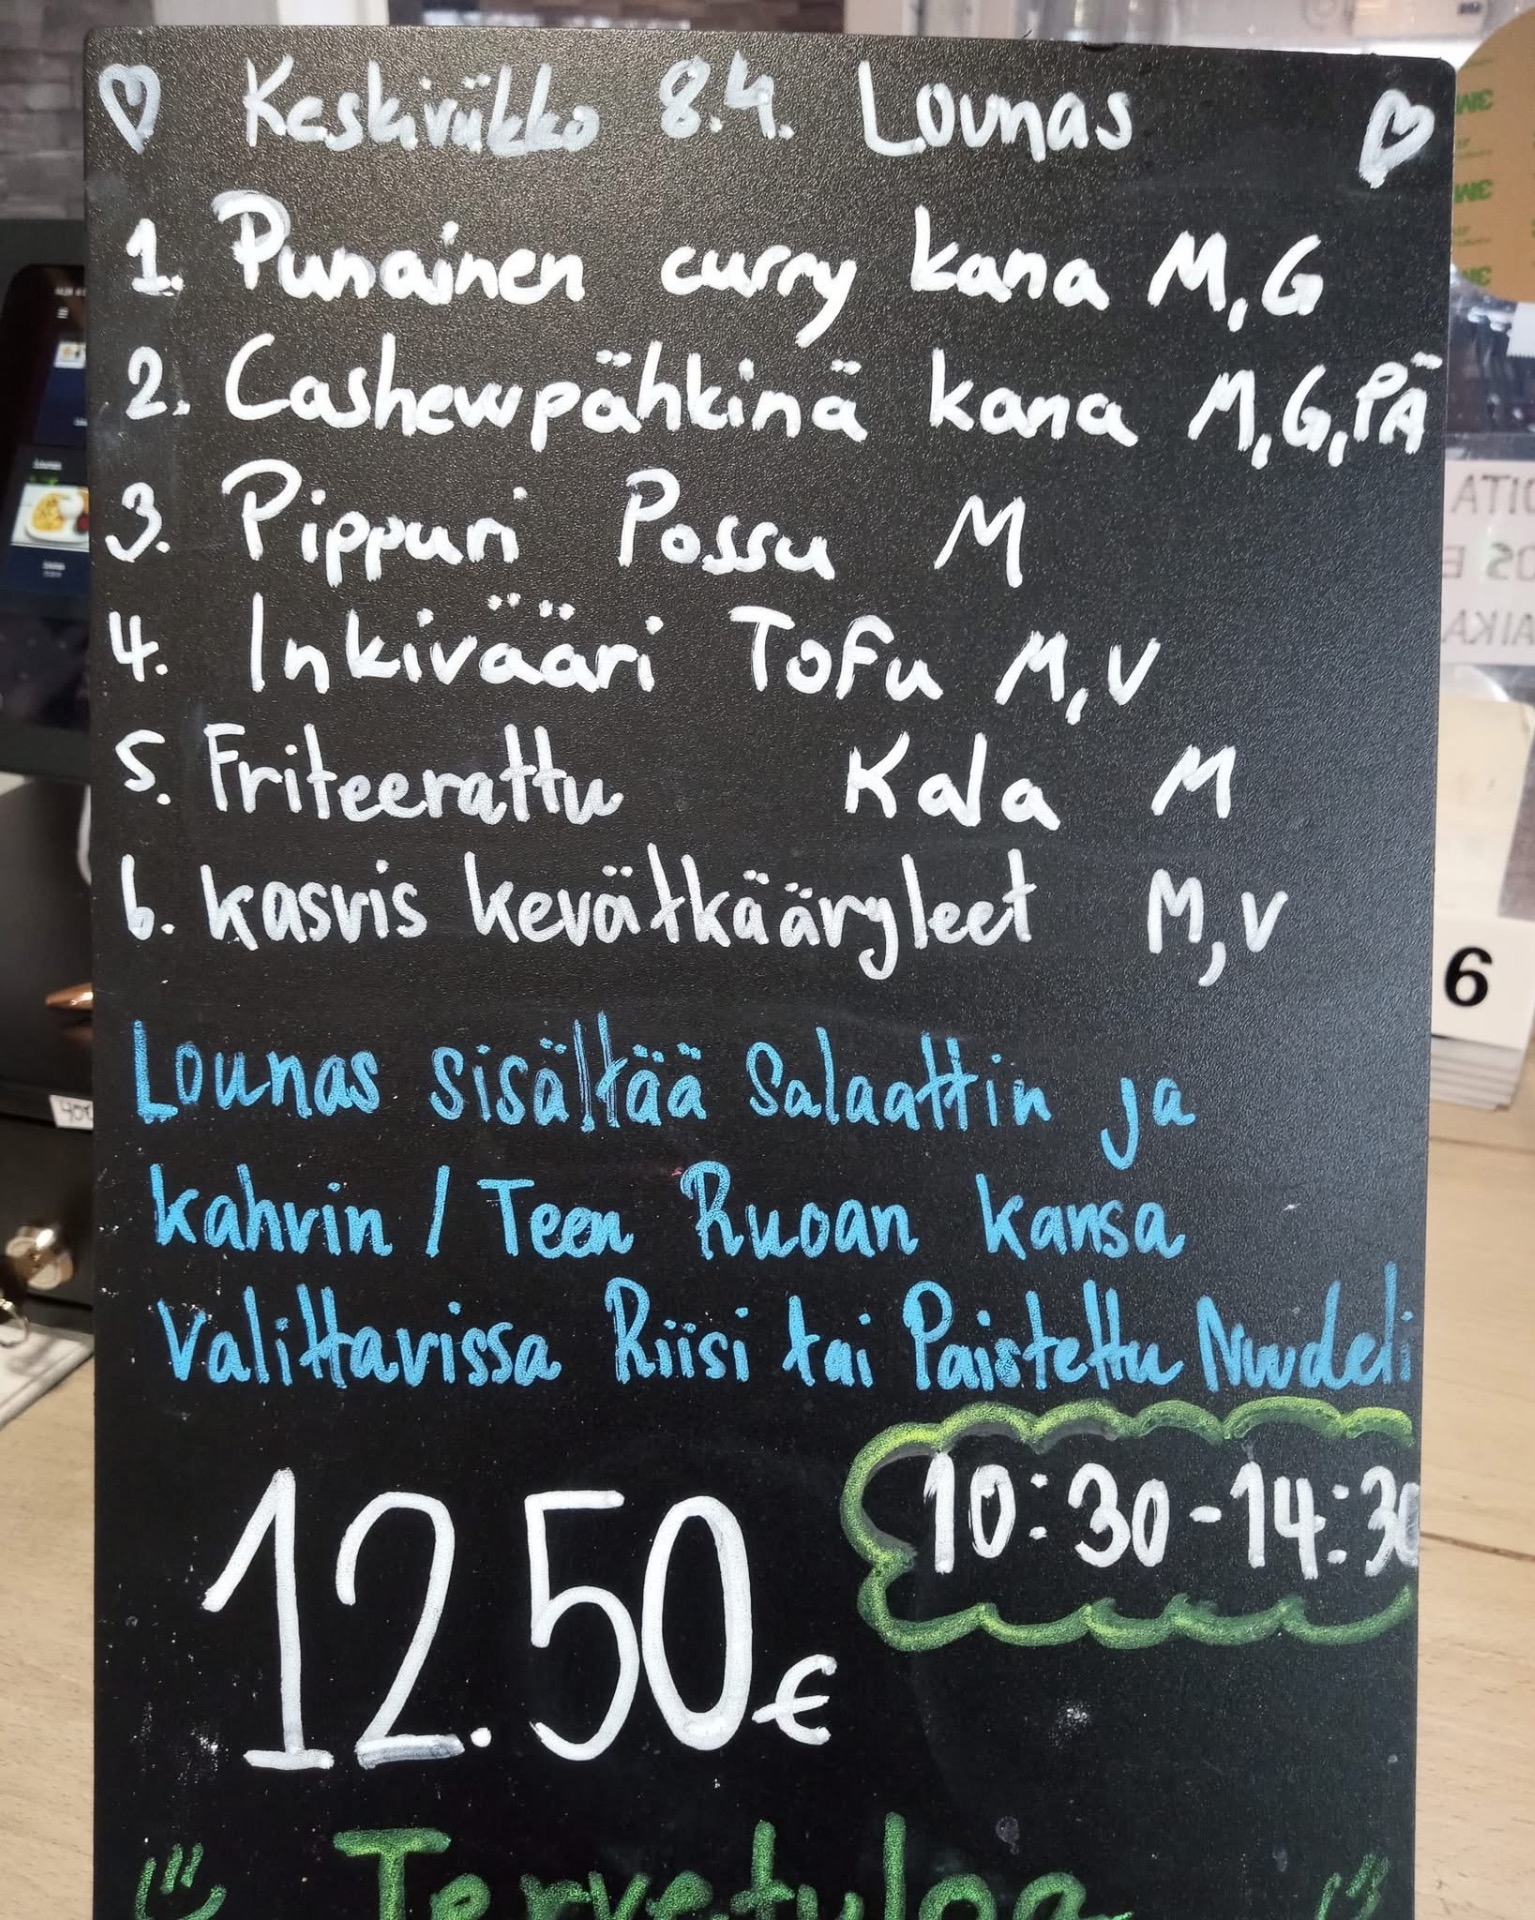 Keskiviikko 8.4. Lounas
1. Punainen curry kana M,G
2. Cashewpähkinä kana M,G,PÄ
3. Pippuri Possu M
4. Inkivääri Tofu M,V
5. Friteerattu Kala M
6. kasvis kevätkääryleet M,V
Lounas sisältää Salaattin ja
kahvin / Teen Ruoan kansa
Valittavissa Riisi tai Paistettu Nuudeli
10:30-14:30
12.50€
Tervetuloa
6
3M
3M
3M